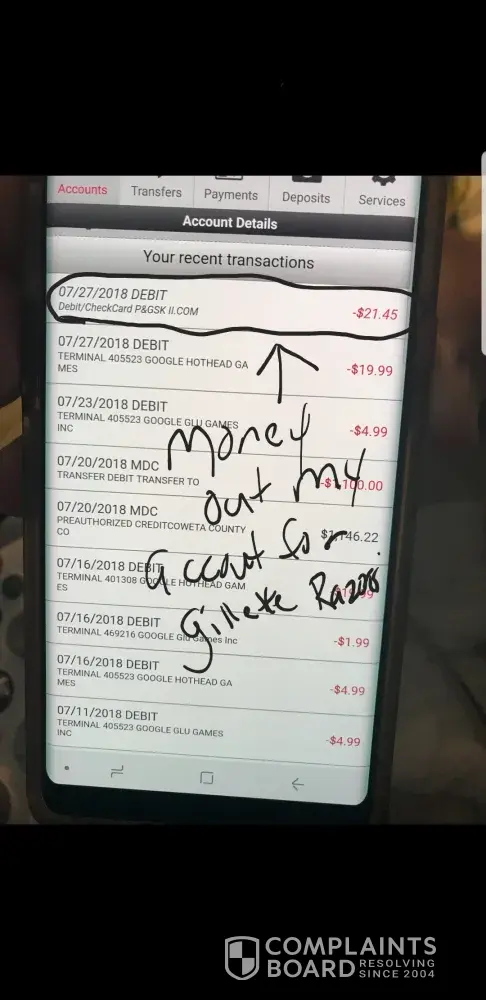 Accounts
Transfers
Payments
Deposits
Services
Account Details
Your recent transactions
07/27/2018 DEBIT
Debit/CheckCard P&GSK II.COM
-$21.45
07/27/2018 DEBIT
TERMINAL 405523 GOOGLE HOTHEAD GA
MES
-$19.99
07/23/2018 DEBIT
TERMINAL 405523 GOOGLE GLU GAMES
INC
-$4.99
07/20/2018 MDC
TRANSFER DEBIT TRANSFER TO
-$1,100.00
07/20/2018 MDC
PREAUTHORIZED CREDITCOWETA COUNTY
CO
07/16/2018 DEBIT
TERMINAL 401308 GOOGLE HOTHEAD GAM
ES
07/16/2018 DEBIT
TERMINAL 469216 GOOGLE Glu Games Inc
-$1.99
07/16/2018 DEBIT
TERMINAL 405523 GOOGLE HOTHEAD GA
MES
-$4.99
07/11/2018 DEBIT
TERMINAL 405523 GOOGLE GLU GAMES
INC
-$4.99
Money
out my
account for
gillette Razors
COMPLAINTS
BOARD
RESOLVING
SINCE 2004